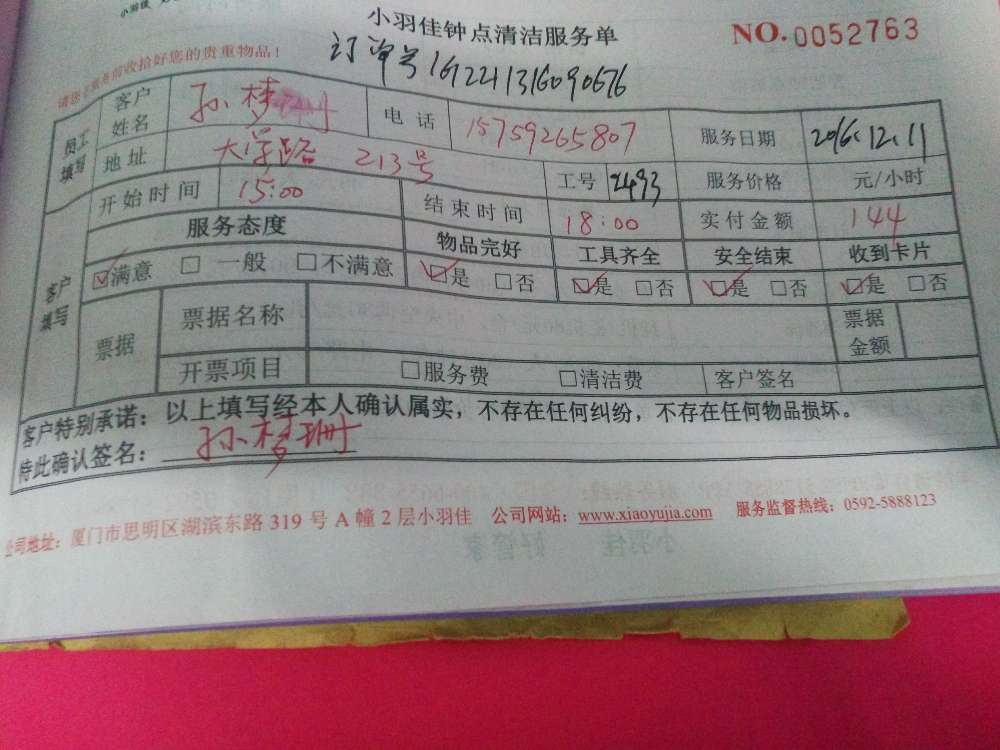 小羽佳钟点清洁服务单 NO. 0052763
请您工服务前收拾好您的贵重物品！
订单号 16122413160090676
员工填写 客户姓名 孙梦珊 电话 15759265807 服务日期 2016.12.11
地址 大学路 213号 工号 2493 服务价格 元/小时
开始时间 15:00 结束时间 18:00 实付金额 144
客户填写 服务态度 物品完好 工具齐全 安全结束 收到卡片
☑满意 □一般 □不满意 ☑是 □否 ☑是 □否 ☑是 □否 ☑是 □否
票据 票据名称 票据金额
开票项目 □服务费 □清洁费 客户签名
客户特别承诺：以上填写经本人确认属实，不存在任何纠纷，不存在任何物品损坏。
特此确认签名：孙梦珊
公司地址：厦门市思明区湖滨东路 319 号 A 幢 2 层小羽佳 公司网站：www.xiaoyujia.com 服务监督热线：0592-5888123